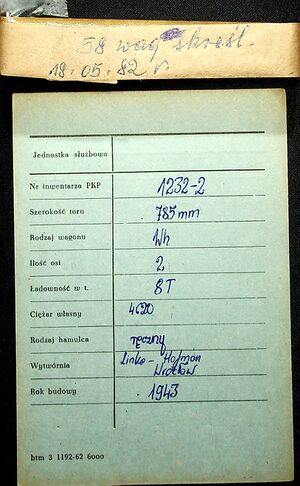 58 wag skreśl.
18.05.82 r.
Jednostka służbowa
Nr inwentarza PKP 1232-2
Szerokość toru 785 mm
Rodzaj wagonu Wh
Ilość osi 2,
Ładowność w t. 8T
Ciężar własny 4620
Rodzaj hamulca ręczny
Wytwórnia Linke-Hofman
Wrocław
Rok budowy 1943
btm 3 1192-62 6000